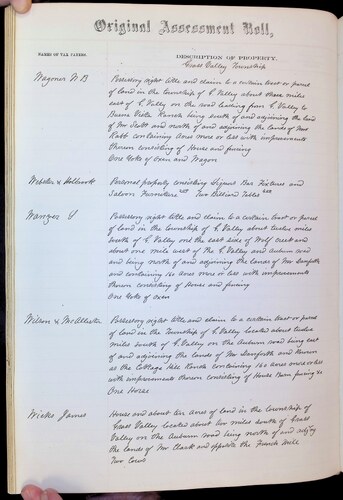 Original Assessment Roll,
NAMES OF TAX PAYERS.
DESCRIPTION OF PROPERTY.
Grass Valley Township
Wagoner W B
Possessory right title and claim to a certain tract or parcel
of land in the township of G Valley about three miles
east of G. Valley on the road leading from G Valley to
Buena Vista Ranch being south of and adjoining the land
of Mr Scott and north of and adjoining the lands of Mrs
containing acres more or less with improvements
thereon consisting of House and fencing
One Yoke of Oxen and Wagon
Webster &
Personal property consisting Liquors Bar Fixtures and
Saloon Furniture Two Billiard Tables
Possessory right title and claim to a certain tract or parcel
of land in the township of G. Valley about twelve miles
south of G Valley on the east side of Wolf creek and
about one mile east of the G Valley and Auburn road
and being north of and adjoining the lands of Mr Danforth
and containing 160 acres more or less with improvements
thereon consisting of House and fencing
One Yoke of Oxen
Wilson & McAllister
Possessory right title and claim to a certain tract or parcel
of land in the Township of G Valley located about twelve
miles south of G. Valley on the Auburn road being east
of and adjoining the lands of Mr Danforth and known
as the Cottage Hill Ranch containing 160 acres more or less
with improvements thereon consisting of House Barn fencing &c
One Horse
James
House and about ten acres of land in the township of
Grass Valley located about two miles south of Grass
Valley on the Auburn road being north of and adj'g
the lands of Mr Clark and opposite the French Mill
Two Cows